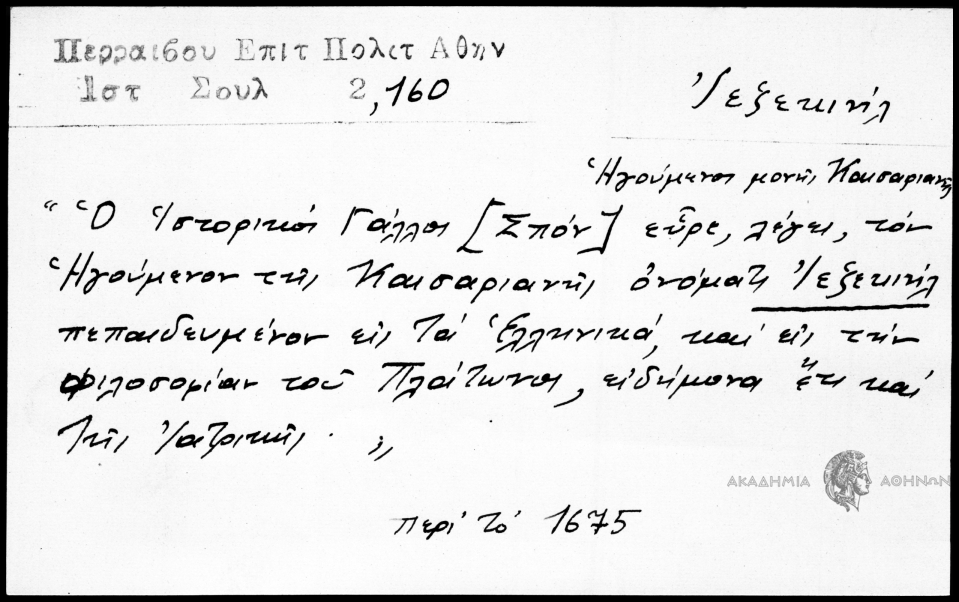 Περραιβου Επιτ Πολιτ Αθην
Ιστ Σουλ 2,160
Ἰεζεκιήλ
Ἡγούμενος μονῆς Καισαριανῆς
"Ὁ Ἱστορικὸς Γάλλος [Σπόν] εὗρε, λέγει, τὸν
Ἡγούμενον τῆς Καισαριανῆς ὀνόματι Ἰεζεκιήλ
πεπαιδευμένον εἰς τὰ Ἑλληνικά, καὶ εἰς τὴν
φιλοσοφίαν τοῦ Πλάτωνος, εἰδήμονα ἔτι καὶ
τῆς Ἰατρικῆς. "
ΑΚΑΔΗΜΙΑ ΑΘΗΝΩΝ
περὶ τὸ 1675